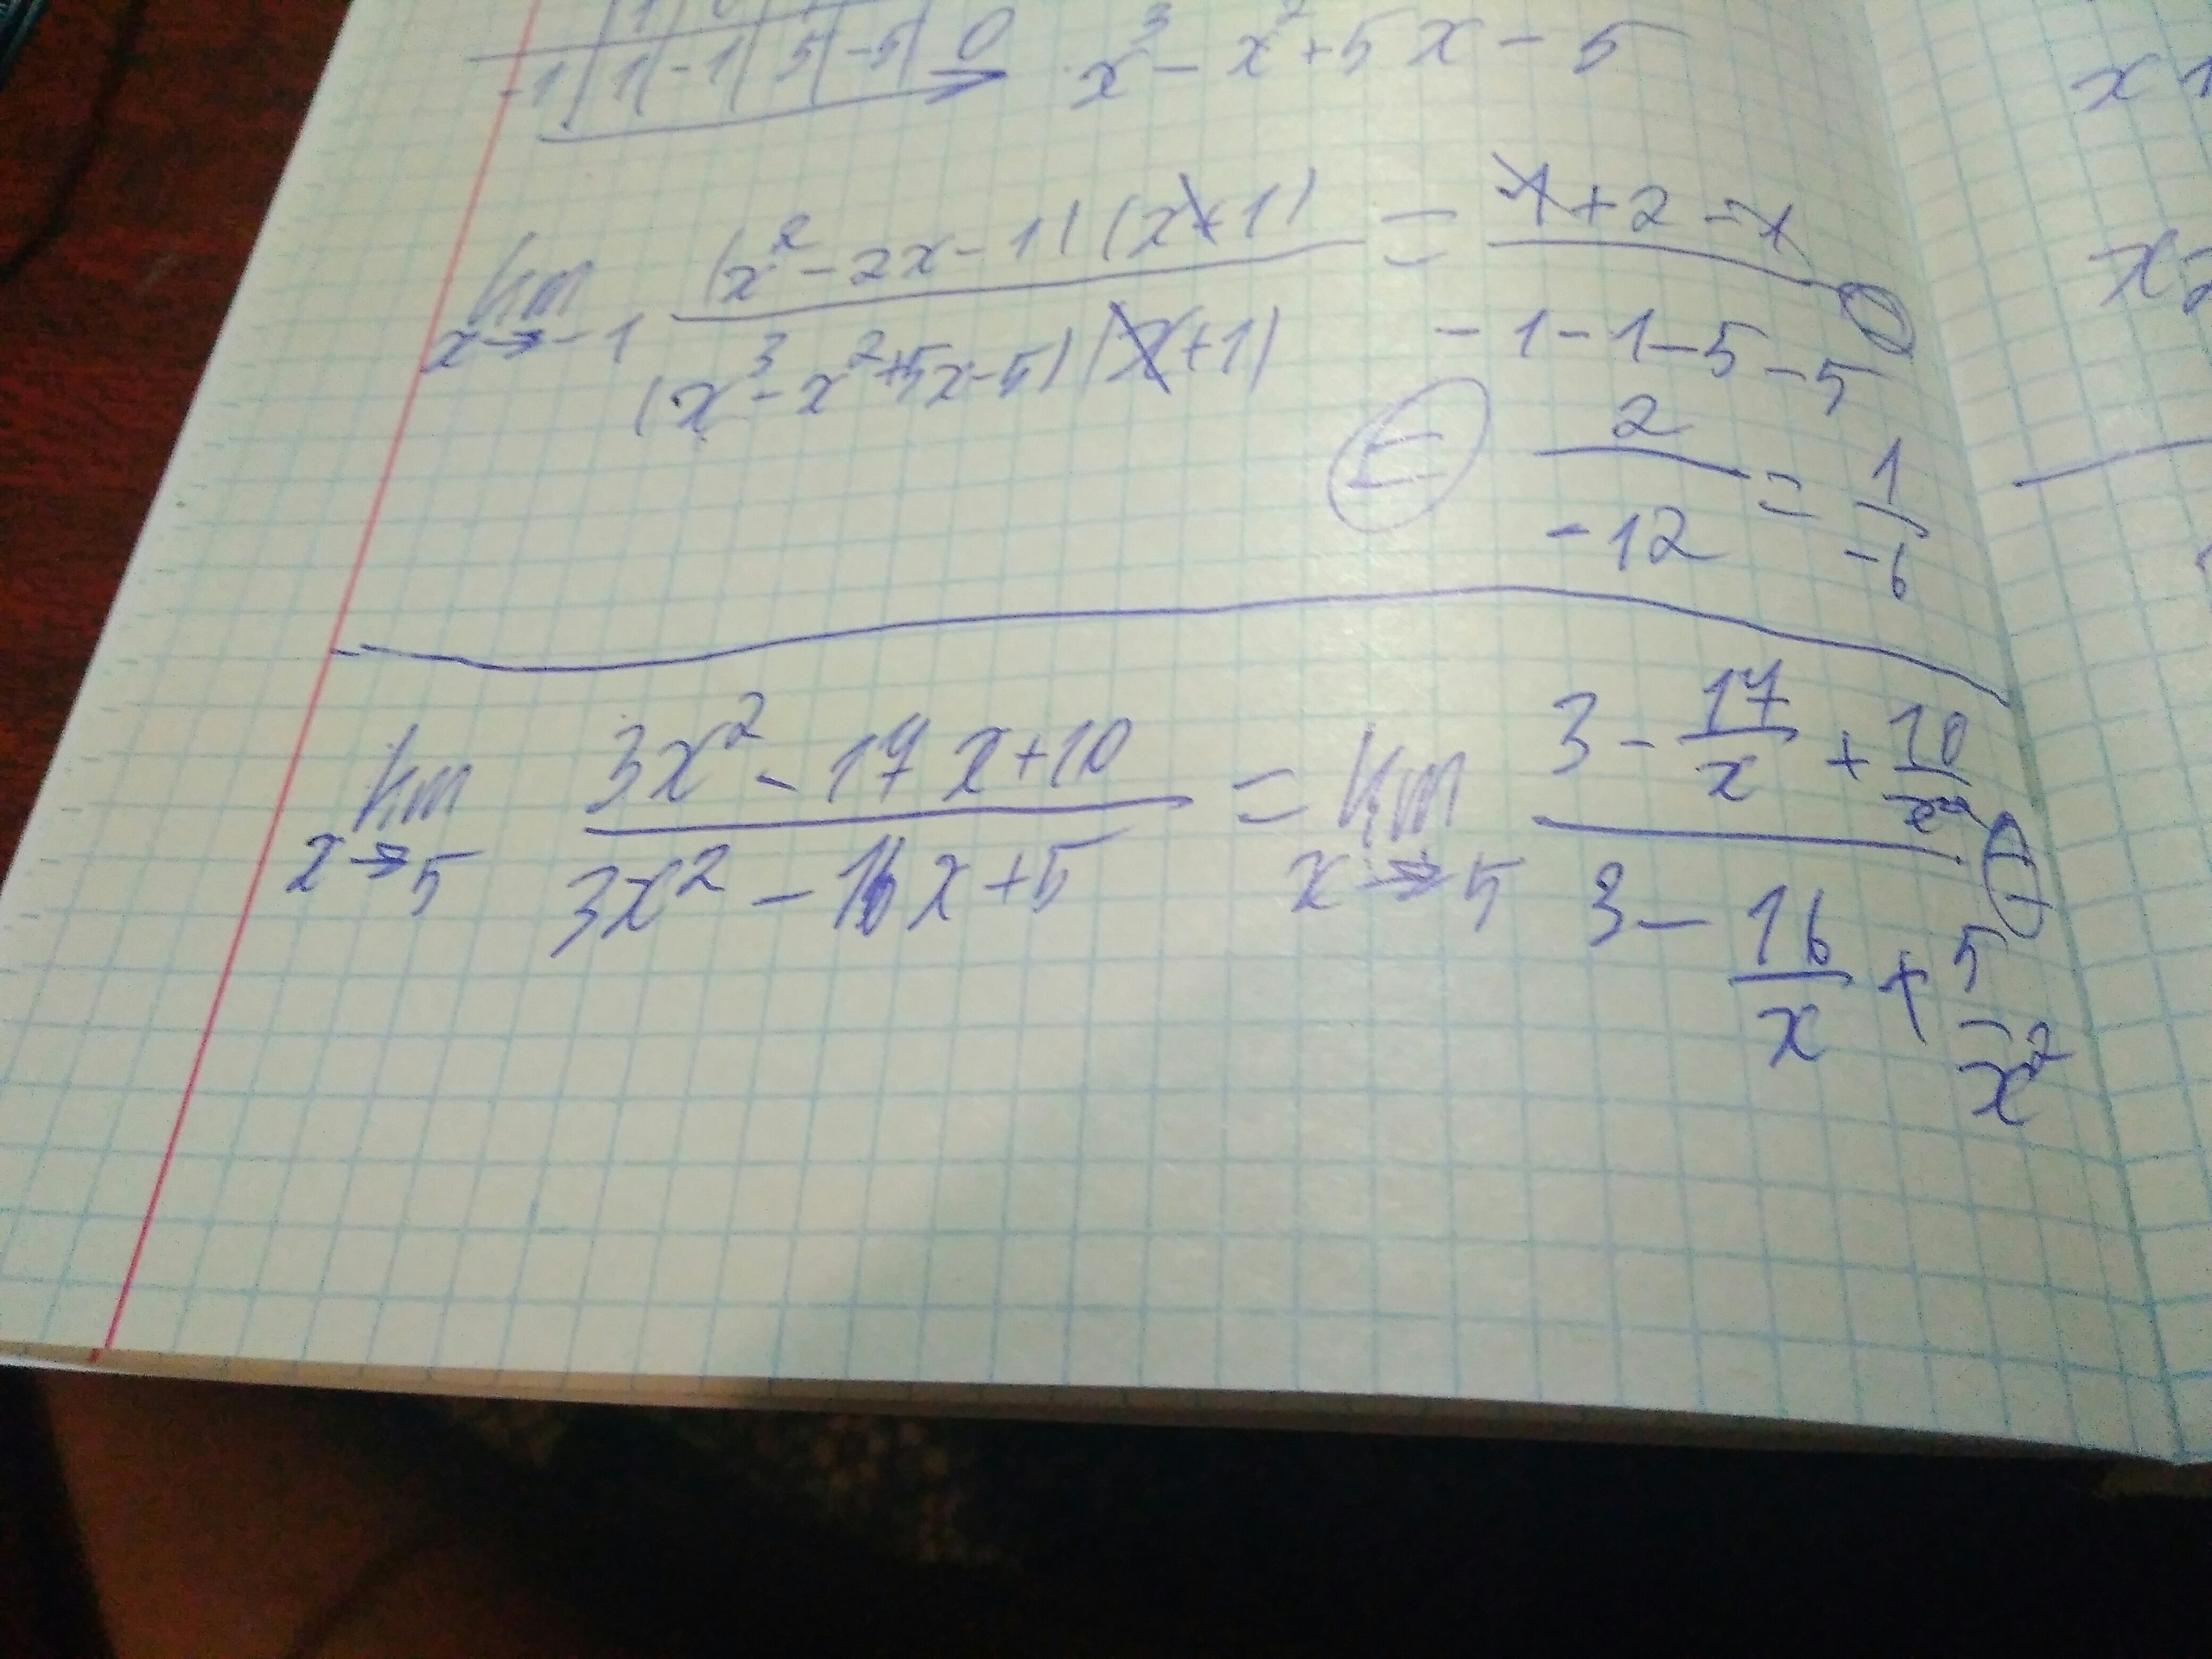 -1 | 1 | -1 | 5 | -5 | 0 → x³ - x² + 5x - 5
lim x→-1 (x² - 2x - 1)(x+1) / (x³ - x² + 5x - 5)(x+1) = 1 + 2 - 1 / -1 - 1 - 5 - 5
= 2 / -12 = 1 / -6
lim x→5 3x² - 17x + 10 / 3x² - 16x + 5 = lim x→5 3 - 17/x + 10/x² / 3 - 16/x + 5/x² =